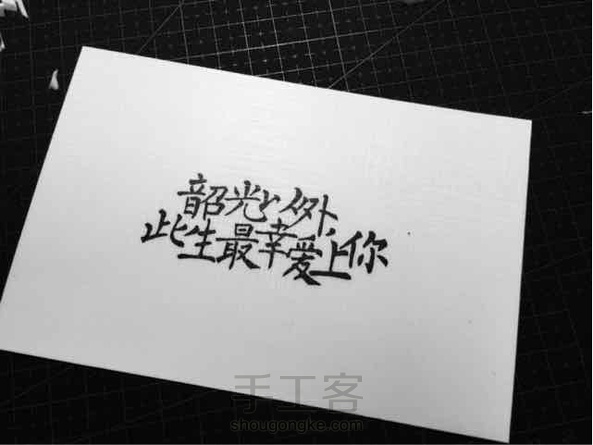 韶光以外
此生最幸爱上你
手工客
shougongke.com